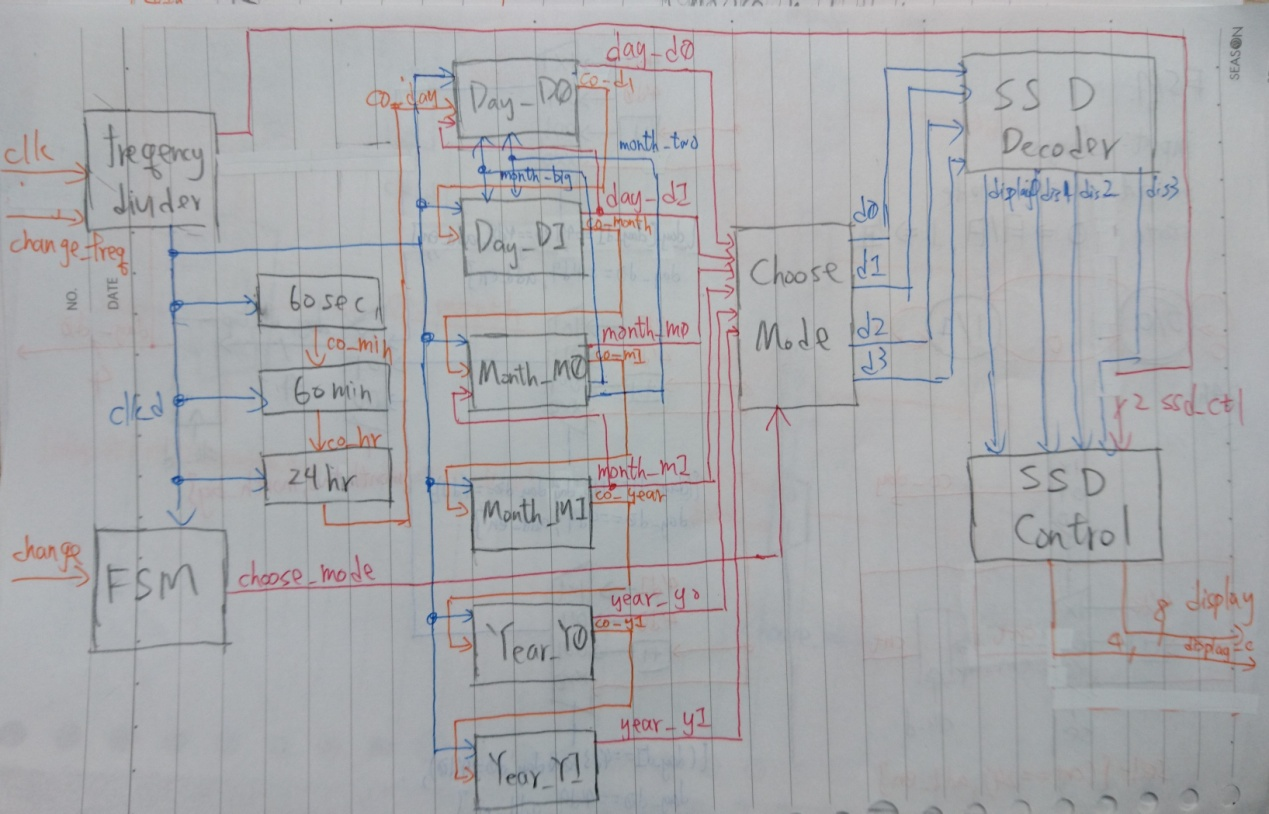 SEASON
NO.
DATE
clk
change_freq
freqency
divider
60 sec
co_min
60 min
co_hr
24 hr
clk_d
change
FSM
choose_mode
co_day
Day_D0
day_d0
co_d1
month_two
month_big
Day_D1
day_d1
co_month
Month_M0
month_m0
co_m1
Month_M1
month_m1
co_year
Year_Y0
year_y0
co_y1
Year_Y1
year_y1
Choose
Mode
d0
d1
d2
d3
SSD
Decoder
display0
dis1
dis2
dis3
2 ssd_ctl
SSD
Control
8 display
4 display_c